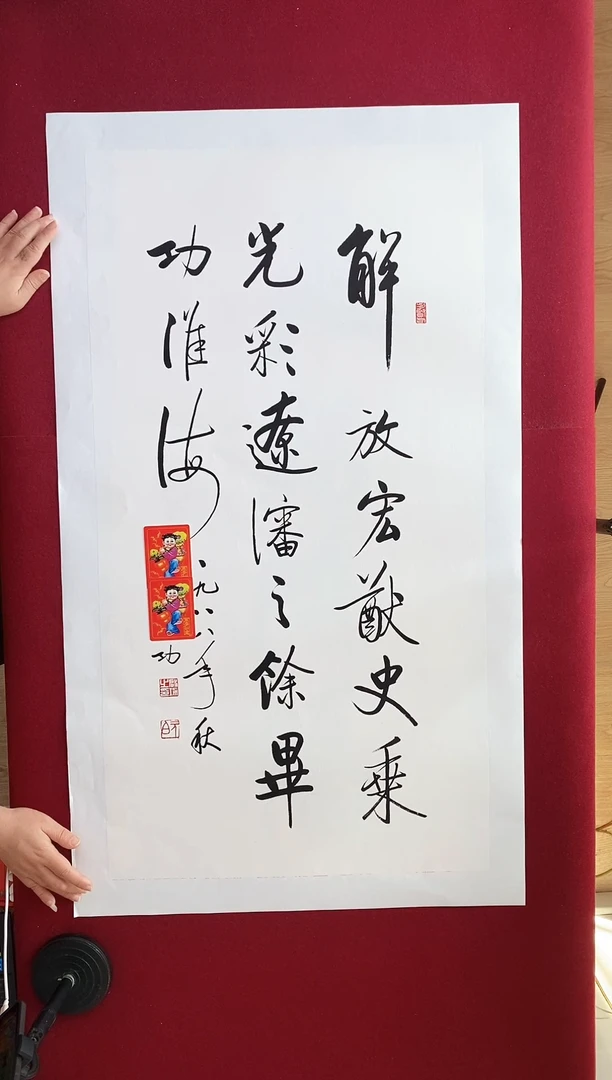 解放宏猷史乘
光彩遼瀋之餘畢
功淮海
一九八八年秋
功